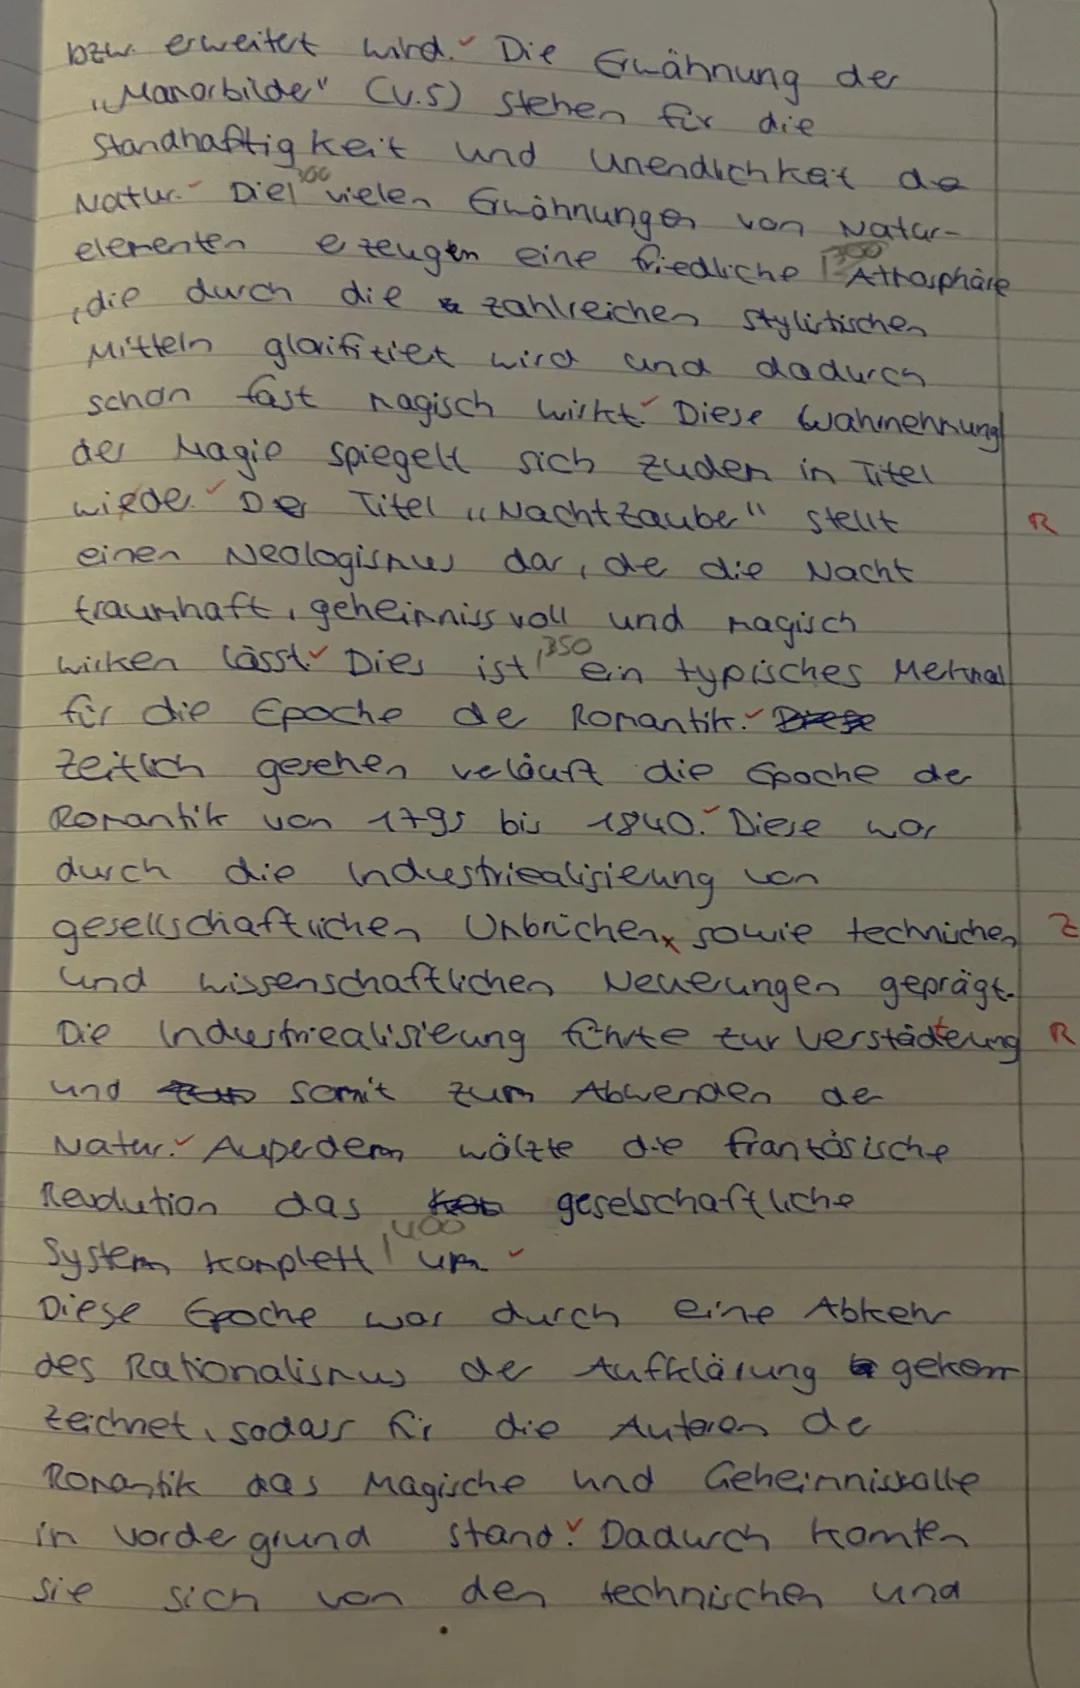 bzw. erweitert wird. Die Erwähnung der
„Marmorbilder" (V.5) stehen für die
Standhaftigkeit und Unendlichkeit der
Natur. Die vielen Erwähnungen von Natur-
300
elementen erzeugen eine friedliche Athosphäre
300
, die durch die zahlreichen stylistischen
Mitteln glorifiziert wird und dadurch
schon fast magisch wirkt. Diese Wahrnehmung
der Magie spiegelt sich zudem in Titel
wieder. Der Titel „Nachtzauber" stellt R
einen Neologismus dar, der die Nacht
traumhaft, geheimnissvoll und magisch
wirken lässt. Dies ist ein typisches Merkmal
350
für die Epoche der Romantik. Diese
Zeitlich gesehen verläuft die Epoche der
Romantik von 1795 bis 1840. Diese war
durch die Industriealisierung von
gesellschaftlichen Umbrüchen, sowie technichen Z
und wissenschaftlichen Neuerungen geprägt.
Die Industriealisierung führte zur Verstädterung R
und somit zum Abwenden der
Natur. Außerdem wälzte die französische
Revolution das geselschaftliche
System komplett um.
400
Diese Epoche war durch eine Abkehr
des Rationalismus der Aufklärung gekenn
zeichnet, sodass für die Autoren der
Romantik das Magische und Geheimnisvolle
in vordergrund stand. Dadurch konnten
sie sich von den technischen und